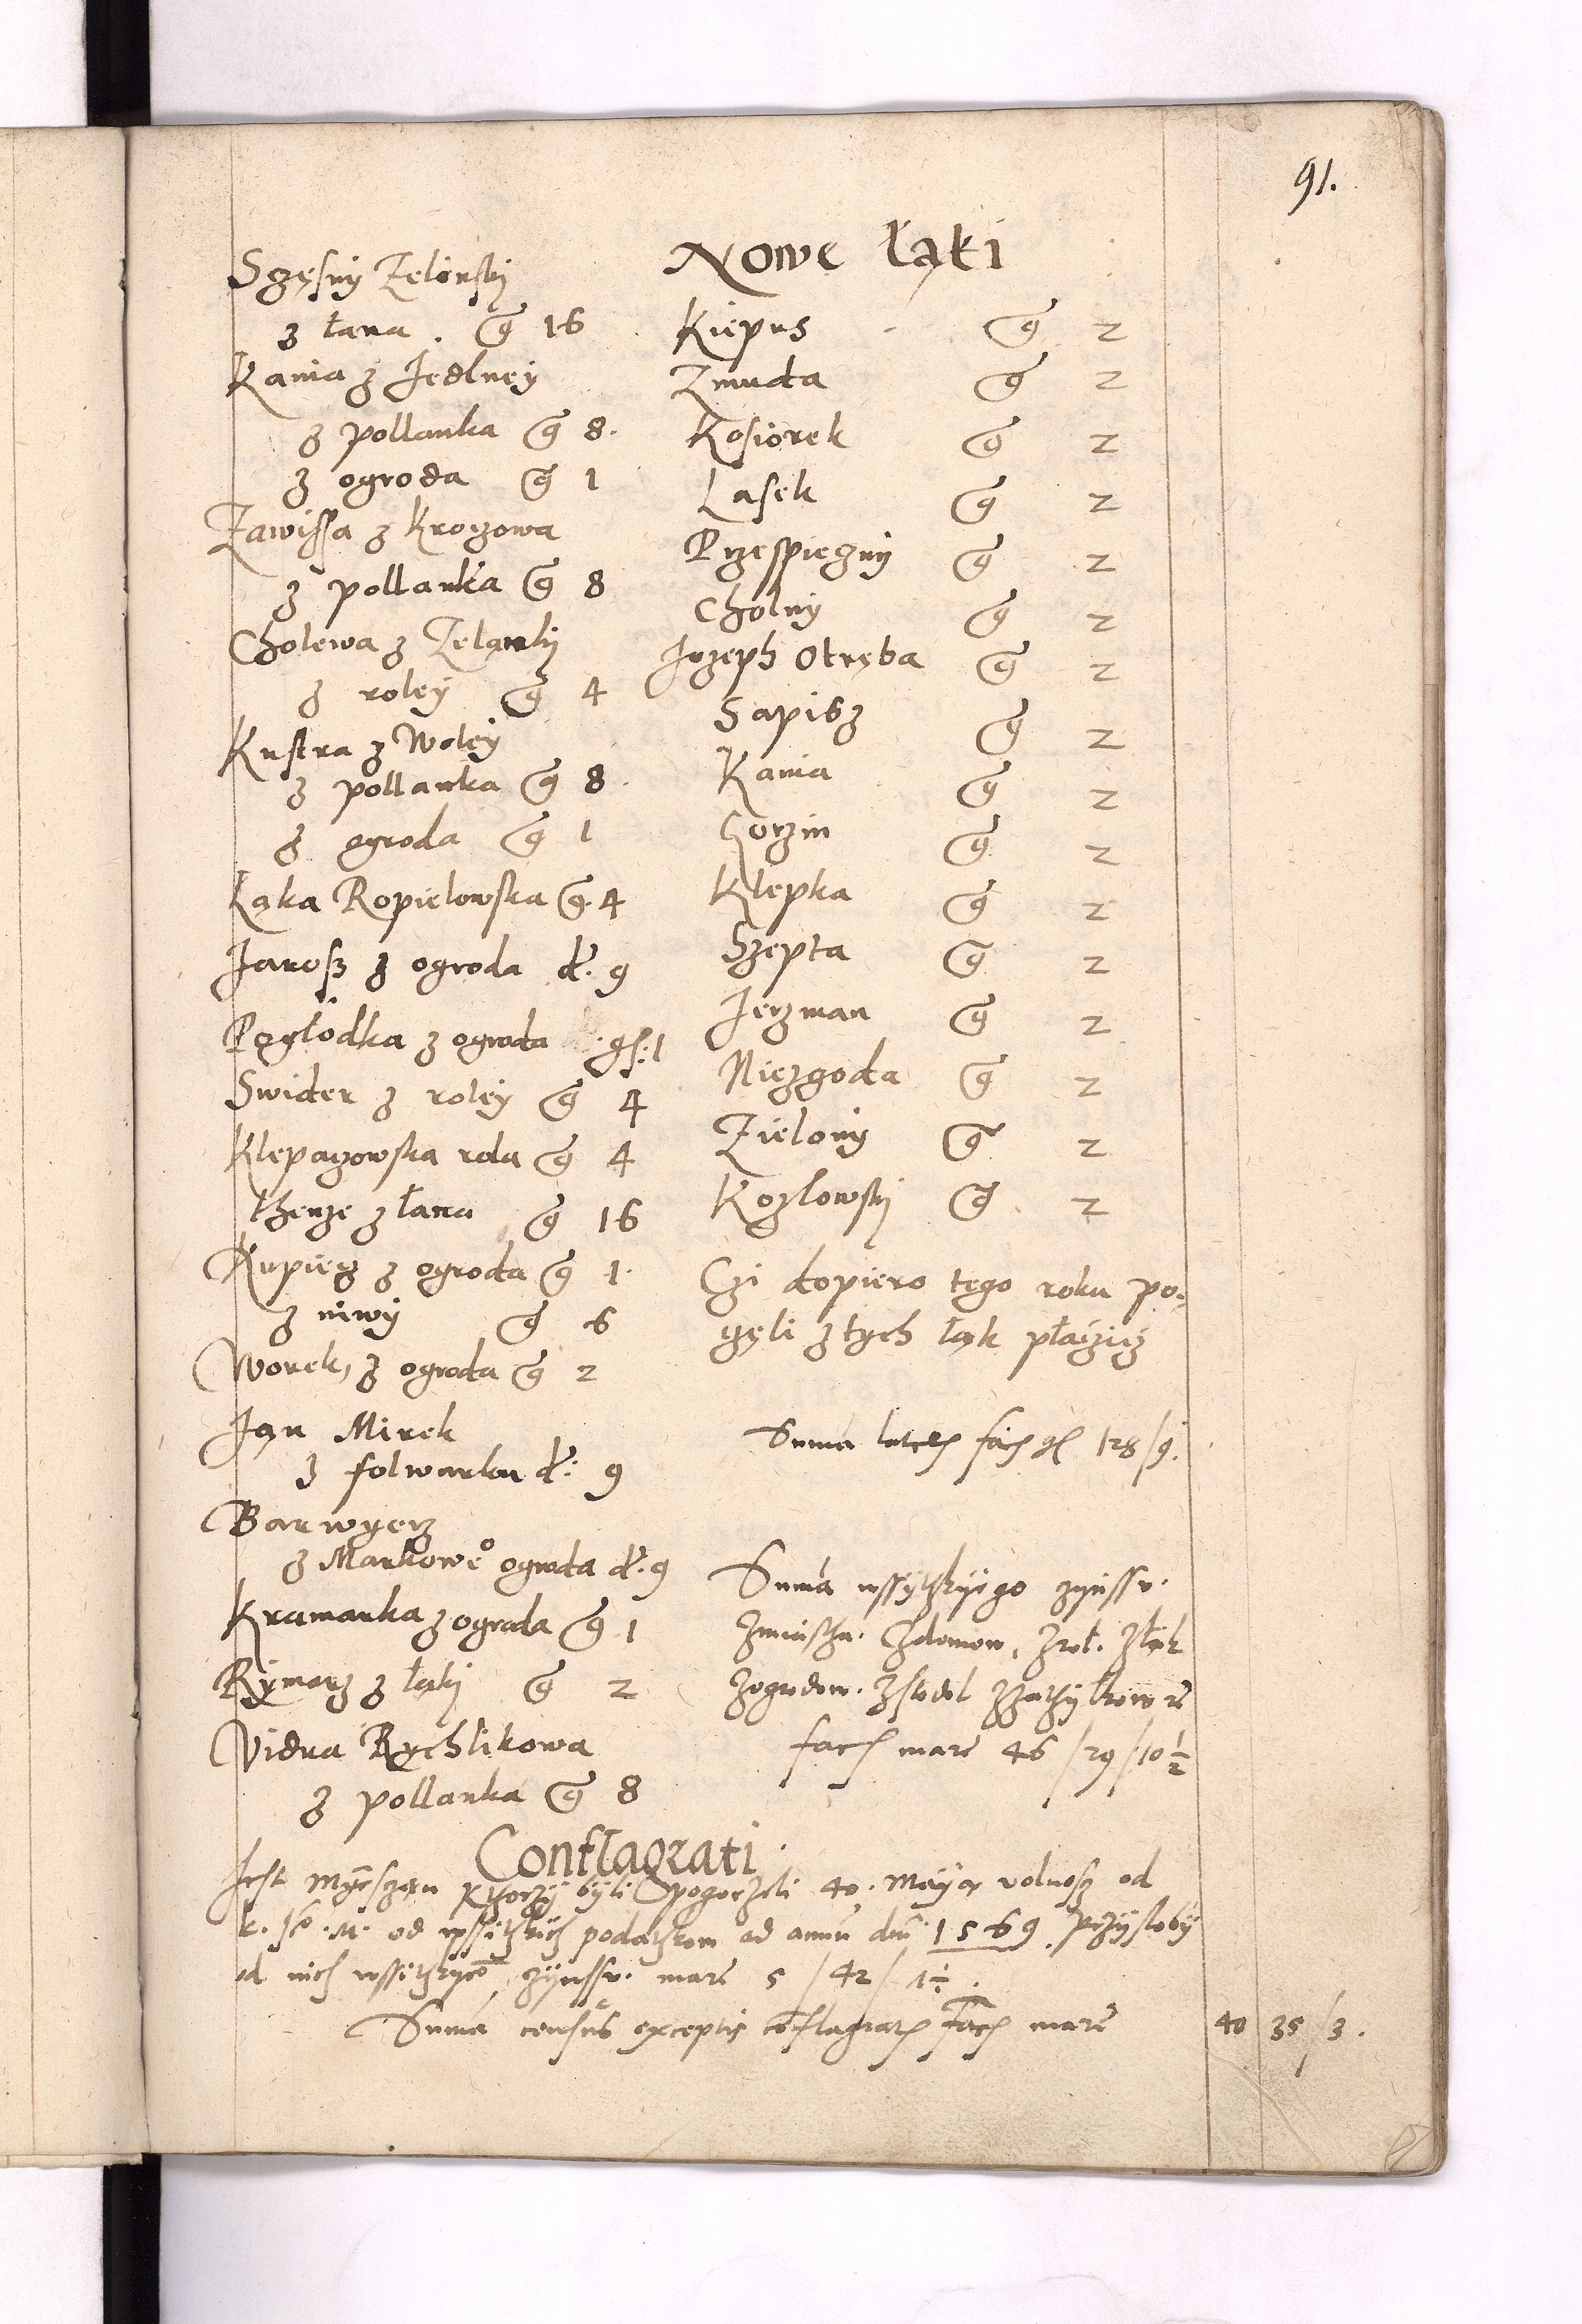 91.
Sczęsny Zelonskj
z łana . g 16
Kania z Jedlney
z pollanka g 8.
z ogroda g 1
Zawissa z Kroczowa
z pollanka g 8
Cholewa z Zelanky
z roley g 4
Kustra z Woley
z pollanka g 8.
z ogroda g 1
Łąka Ropielowska g 4
Jarosz z ogroda d. 9
Pogłodka z ogroda gs: 1
Swider z roley g 4
Klepaczowska rola g 4
thenze z łana g 16
Kupiecz z ogroda g 1.
z niwy g 6
Worek, z ogroda g 2
Jan Mirek
z folwarku d: 9
Barwyerz
z Markowe° ogroda d. 9
Kramarka z ogroda g 1
Rymarz z łąkj g 2
Vidua Rychlikowa
z pollanka g 8
Nowe łąki
Kiepus g 2
Zmuda g 2
Kosiorek g 2
Lasek g 2
Przespieczny g 2
Cholny g 2
Jozeph Otręba g 2
Sapisz g 2
Kania g 2
Gorzin g 2
Klepka g 2
Szepta g 2
Jerzman g 2
Niezgoda g 2
Zielony g 2
Kozlowskj g 2
Czi dopiero tego roku po,
częli z tych łąk płaczicz
Suma lateris facit gs 128/9.
Suma wssythkyego czynssu.
zmiescza. zdomow, zrol. złąk
zogrodow. zstodol
facit marc 46 /29/10 1/2
Conflagrati
Jest myesczan kthorzy byli pogorzeli 40. Maya volnosz od
k. . M. od wssitkich podatkow ad annu dni 1569. Przyszloby
od nich wssitkyeo czynssu. marc 5 / 42 / 1 1/2.
Suma census exceptis conflagratis facit marc 40 35 /3.